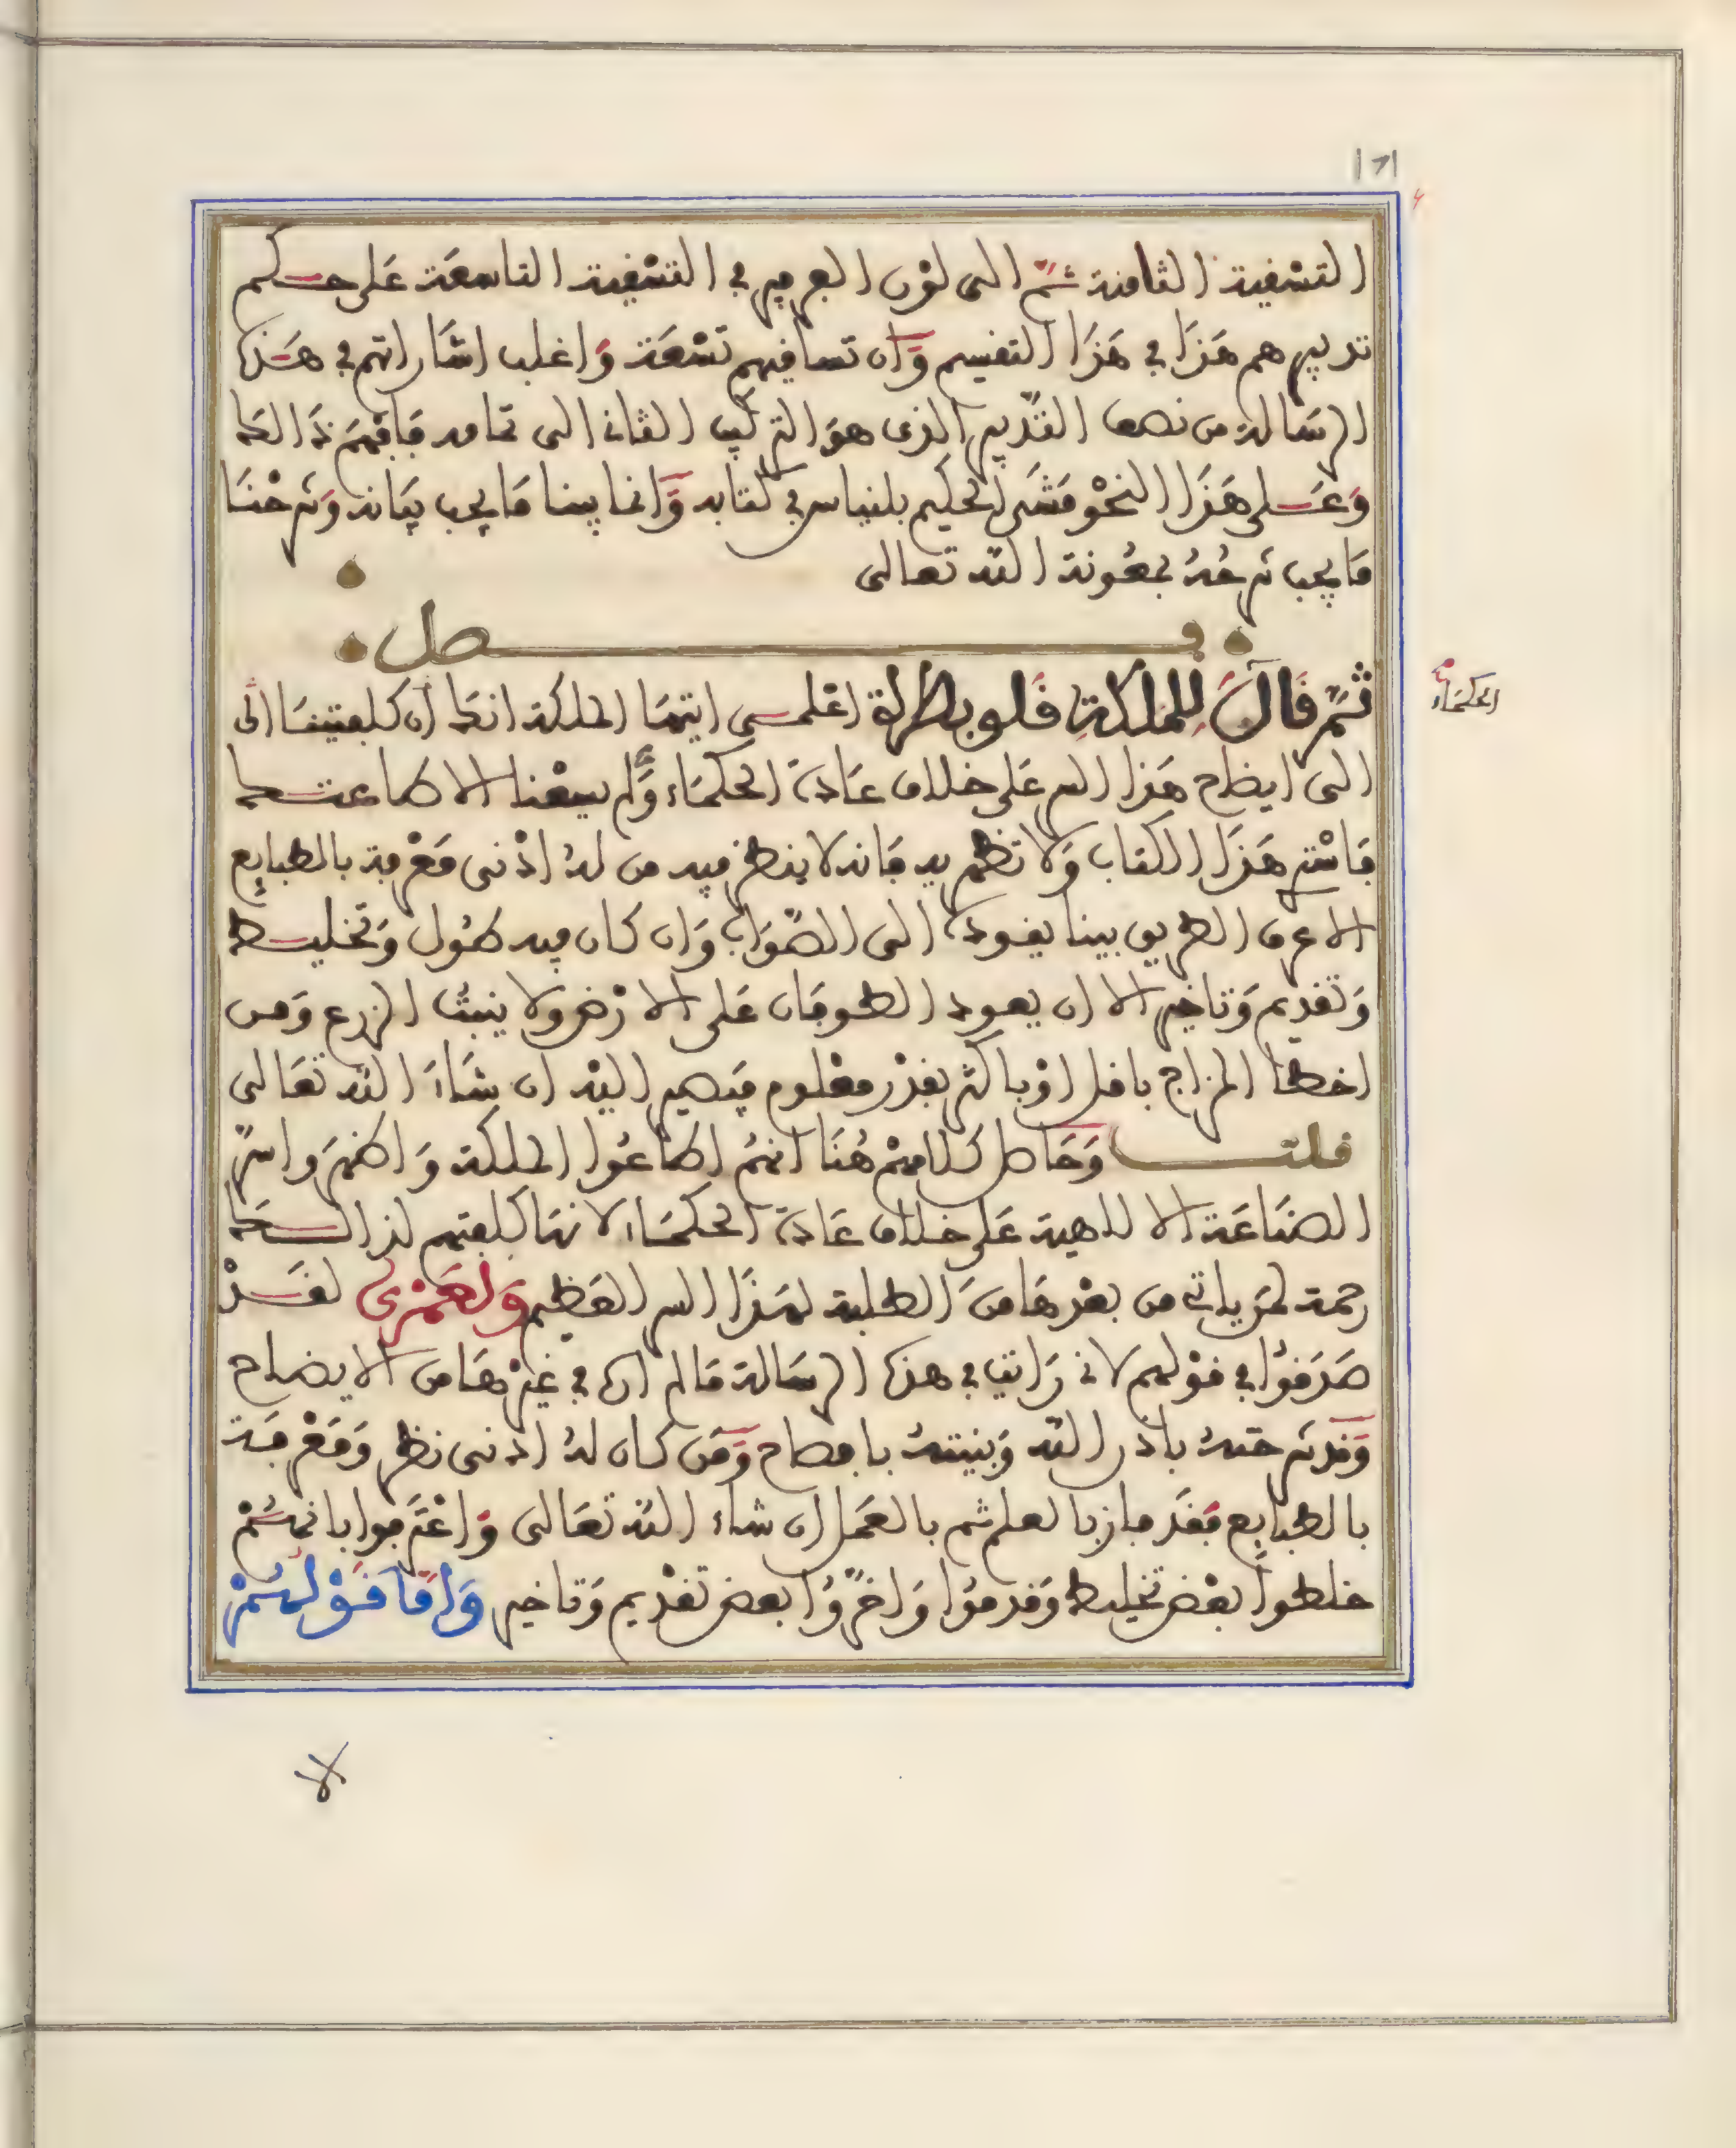 171
التسقية الثامنة ثمّ الى لون البرفير في التسقية التاسعة على حكم
تدبيرهم هذا في هذا التقسيم وان تساقيهم تسعة واغلب اشاراتهم في هذه
الرسالة من نصف التدبير الذى هو التركيب الثانى الى تمامه فافهم ذالك
وعلى هذا النحو مشى الحكيم بلنياس في كتابه وانما بينا ما يجب بيانه وشرحنا
ما يجب شرحه بمعونة الله تعالى
فصل
ثم قال للملكة قلوبطرة اعلمى ايتها الملكة انك ان كلفتينا الى
الى ايضاح هذا السر على خلاف عادة الحكماء ولم يسعنا الا طاعتك
فاسترى هذا الكتاب ولا تظهريه فانه لا ينظر فيه من له اذنى معرفة بالطبايع
الا عرف الطريق بينا يقوده الى الصواب وان كان فيه طول وتخليط
وتقديم وتاخير الا ان يعود الطوفان على الارض ولا ينبت الزرع ومن
اخطا المزاج باقل او باكثر بقدر معلوم فيصير اليه ان شاء الله تعالى
قلت وحاصل كلامهم هنا انهم اطاعوا الملكة واظهروا سرّ
الصناعة الا لاهية على خلاف عادة الحكماء لانها كلفتهم لذالك
رحمة لمن ياتى من بعدها من الطلبة لهذا السر العظيم ولعمرى لقد
صدقوا في قولهم لانى رايت في هذه الرسالة ما لم اره في غيرها من الايضاح
وقد شرحته باذن الله وبينته بافصاح ومن كان له ادنى نظر ومعرفة
بالطبايع فقد فاز بالعلم ثم بالعمل ان شاء الله تعالى واعترفوا بانهم
خلطوا بعض تخليط وقدموا واخّروا بعض تقديم وتاخير واما قولهم
الحكماء
الا